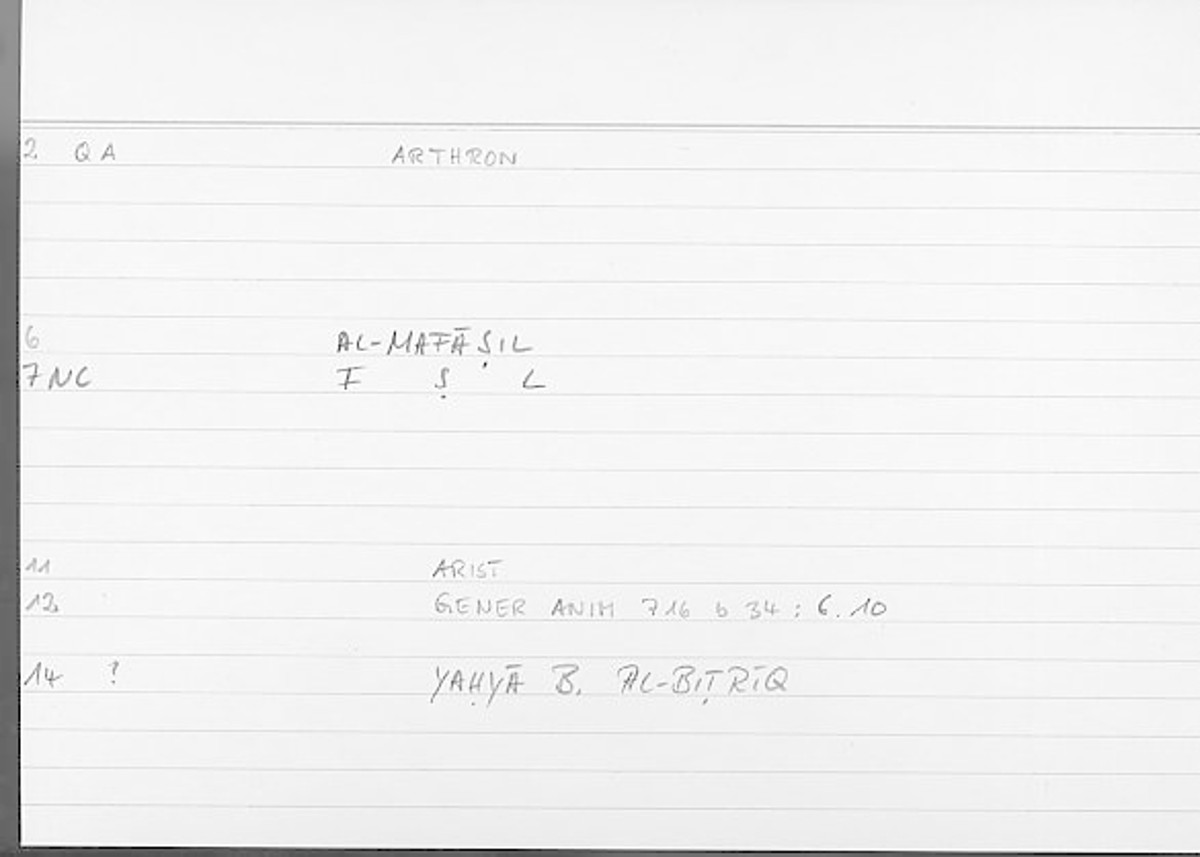 2 QA ARTHRON
6 AL-MAFĀṢIL
7 NC F Ṣ L
11 ARIST
12 GENER ANIM 716 b 34 : 6.10
14 ? YAḤYĀ B. AL-BIṬRĪQ